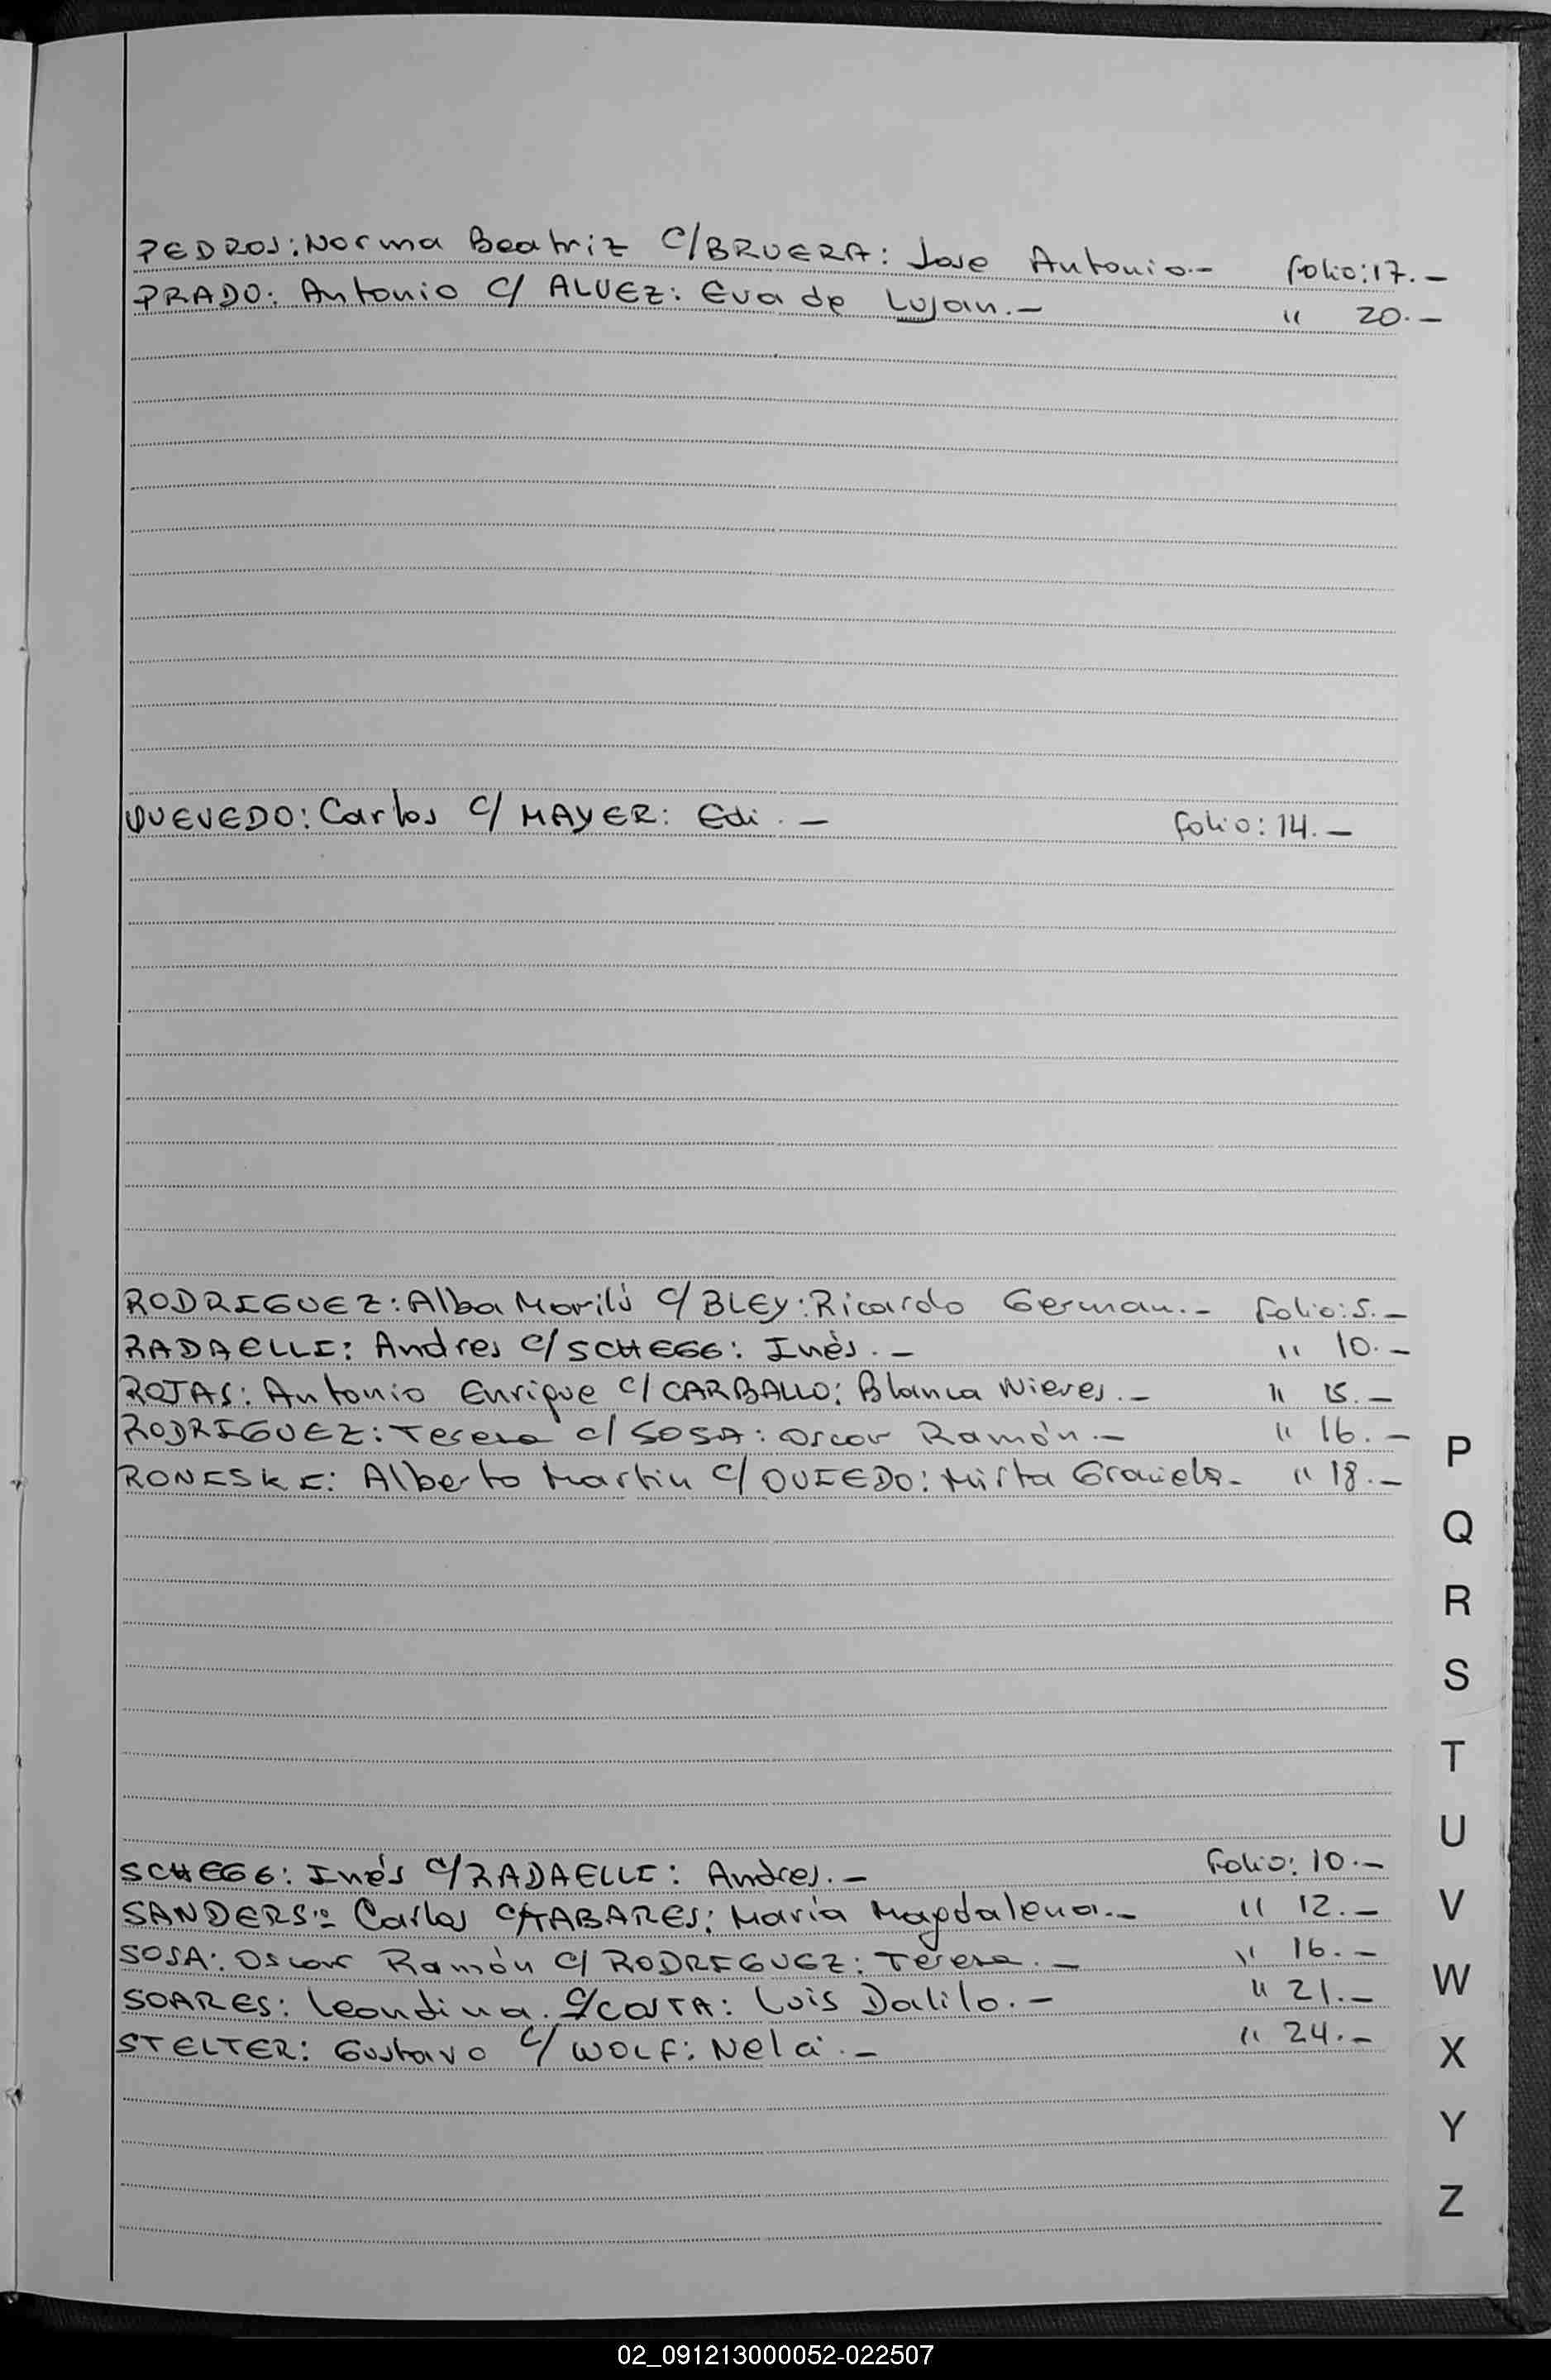 PEDROS: Norma Beatriz C/BRUERA: Jose Antonio.- folio: 17.-
PRADO: Antonio C/ ALVEZ: Eva de Lujan.- " 20.-
QUEVEDO: Carlos C/ MAYER: Edi.- folio: 14.-
RODRIGUEZ: Alba Marilú C/BLEY: Ricardo German.- folio: 5.-
RADAELLI: Andres C/SCHEGG: Inès.- " 10.-
ROJAS: Antonio Enrique C/CARBALLO: Blanca Nieves.- " 15.-
RODRIGUEZ: Teresa C/ SOSA: Oscar Ramón.- " 16.-
RONISKE: Alberto Martin C/ OVIEDO: Mirta Graciela- " 18.-
SCHEGG: Inés C/RADAELLI: Andres.- Folio: 10.-
SANDERS: Carlos C/TABARES: Maria Magdalena.- " 12.-
SOSA: Oscar Ramòn C/ RODRIGUEZ: Teresa.- " 16.-
SOARES: Leondina. C/COSTA: Luis Dalilo.- " 21.-
STELTER: Gustavo C/ WOLF: Nela.- " 24.-
P
Q
R
S
T
U
V
W
X
Y
Z
02_091213000052-022507